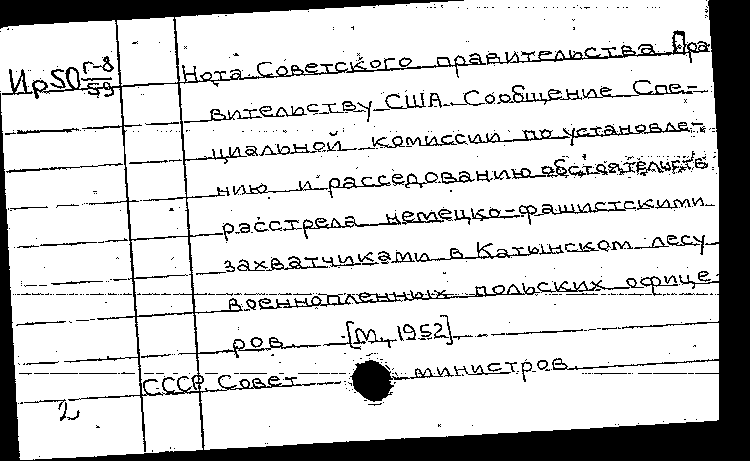 Ир50 г-8/59
Нота Советского правительства Пра
вительству США. Сообщение Спе-
циальной комиссии по установле-
нию и расседованию обстоятельств
расстрела немецко-фашистскими
захватчиками в Катынском лесу
военнопленных польских офице-
ров. [М., 1952].
СССР. Совет министров.
2